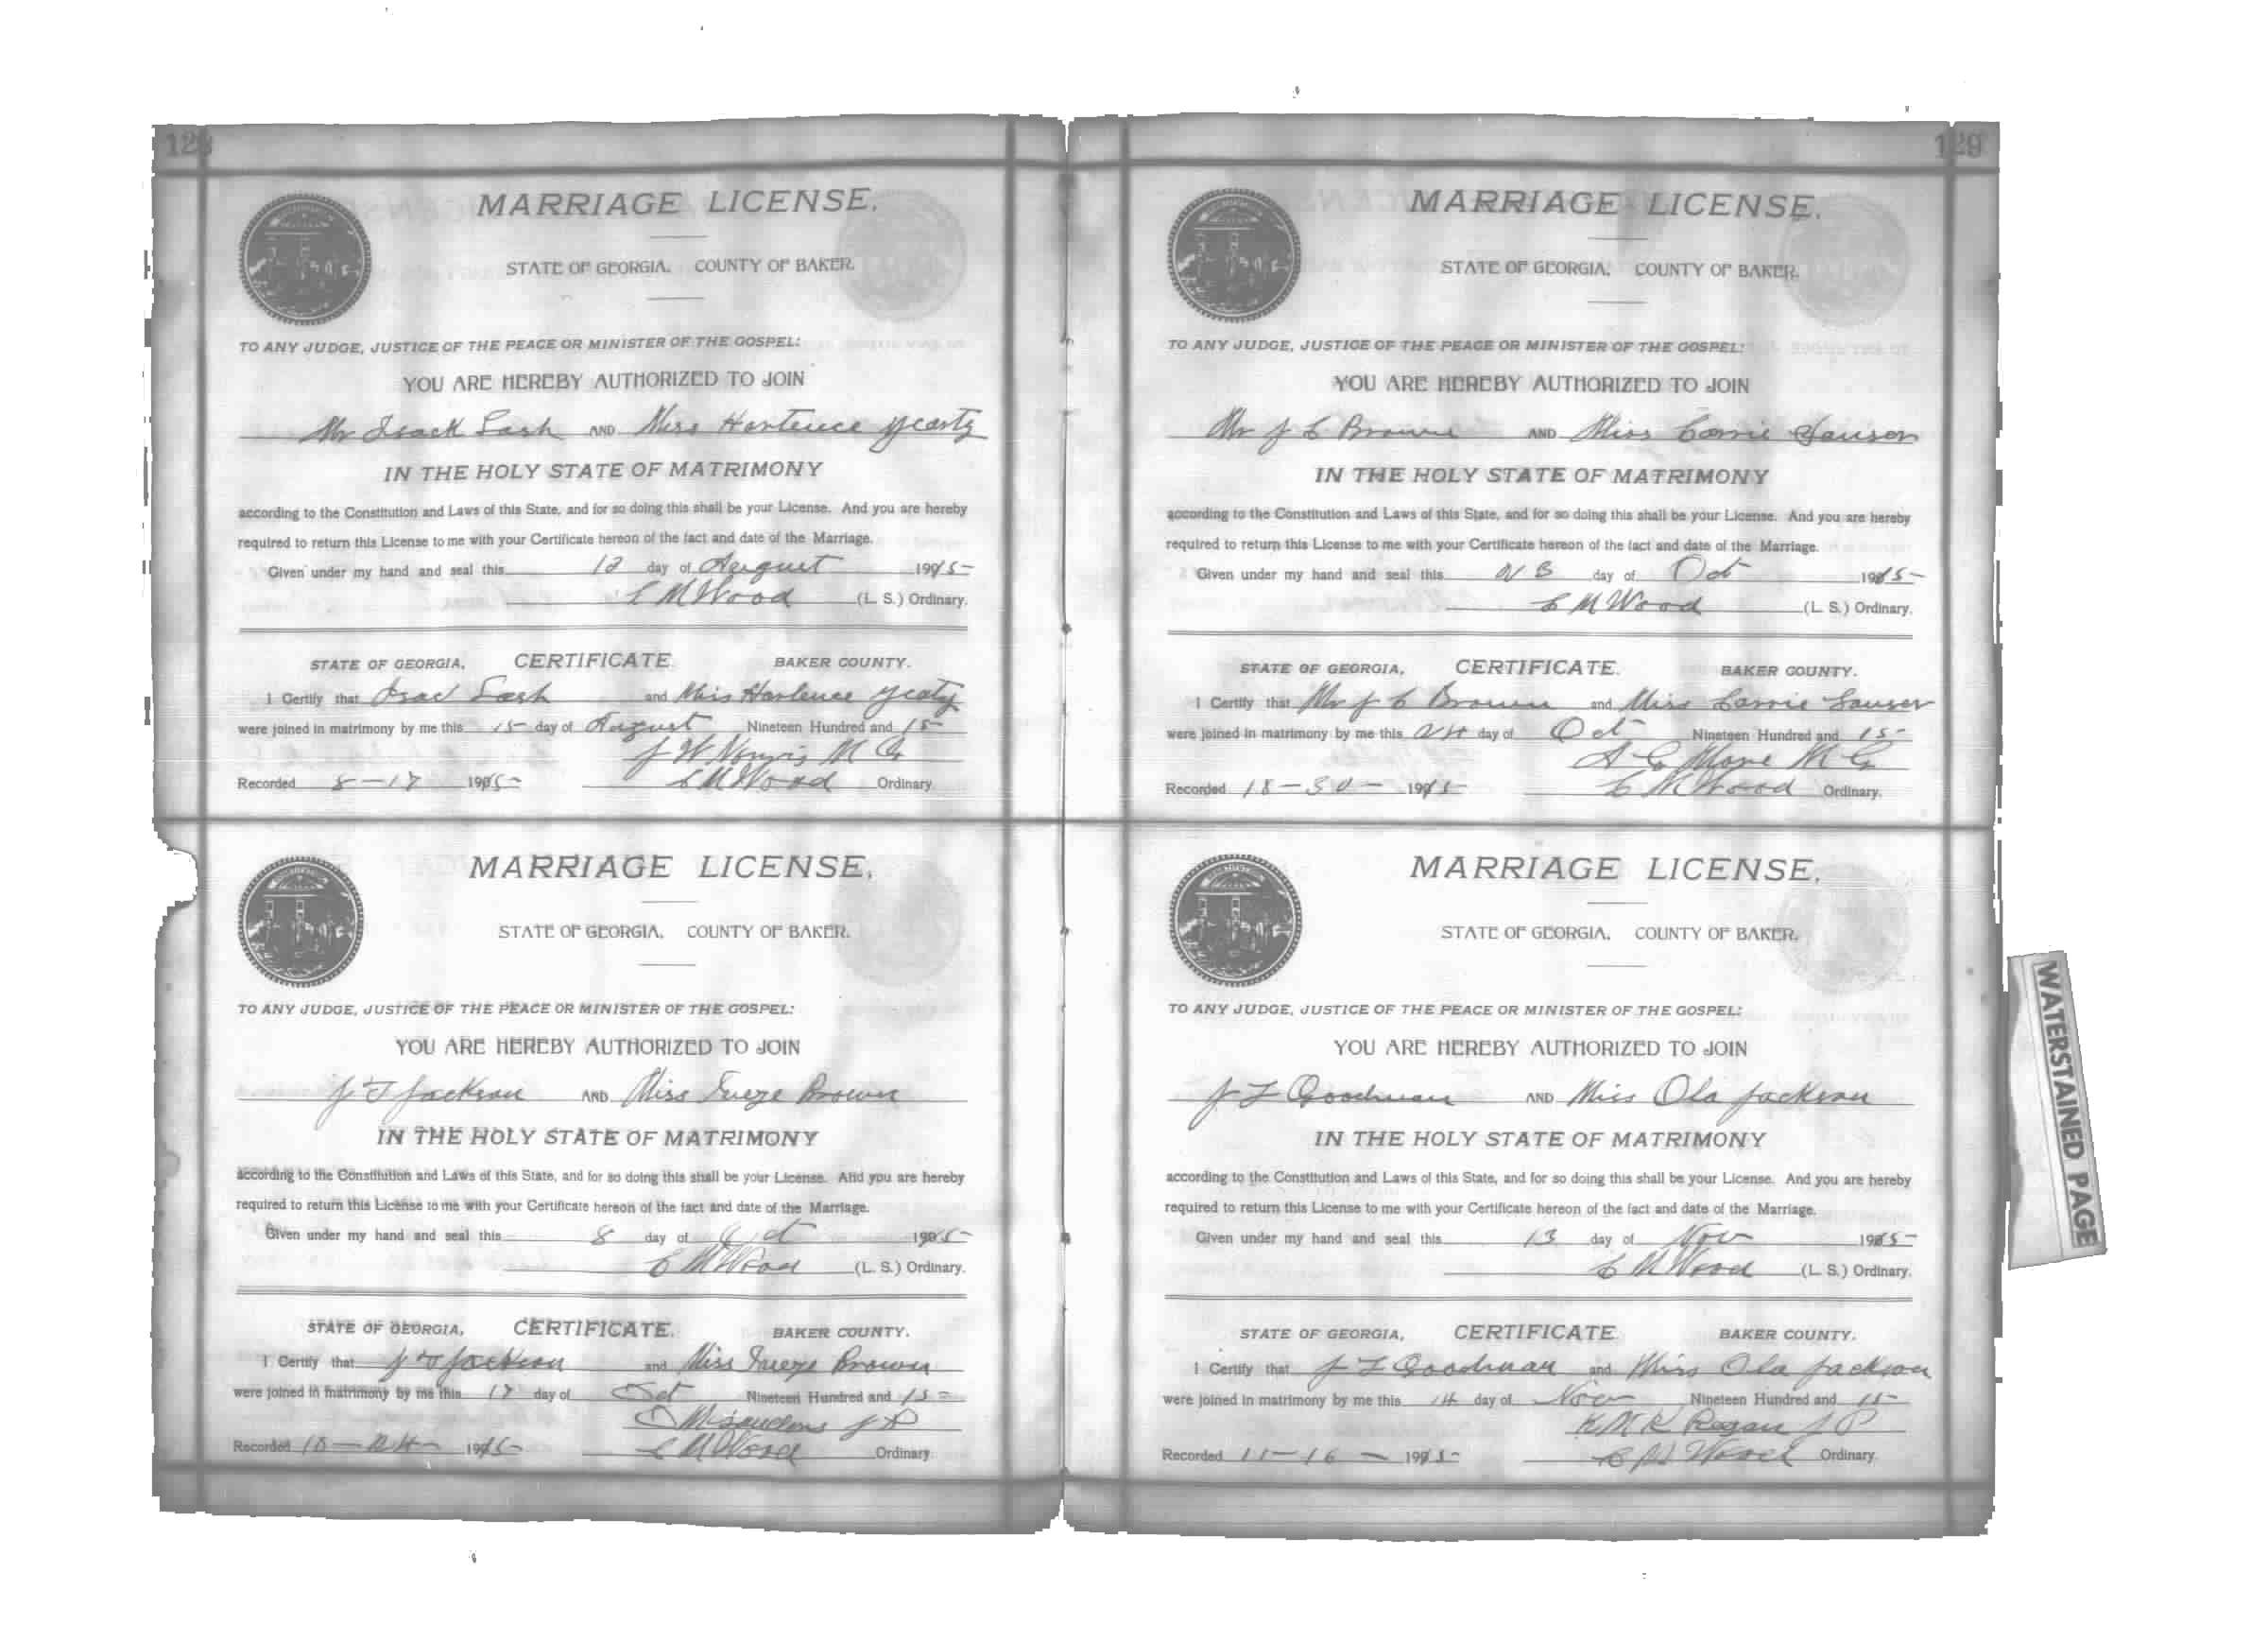 128
MARRIAGE LICENSE.
STATE OF GEORGIA. COUNTY OF BAKER.
TO ANY JUDGE, JUSTICE OF THE PEACE OR MINISTER OF THE GOSPEL:
YOU ARE HEREBY AUTHORIZED TO JOIN
Mr Isack Lash AND Miss Hortence Yearty
IN THE HOLY STATE OF MATRIMONY
according to the Constitution and Laws of this State, and for so doing this shall be your License. And you are hereby
required to return this License to me with your Certificate hereon of the fact and date of the Marriage.
Given under my hand and seal this 12 day of August 1915
C M Wood (L. S.) Ordinary.
STATE OF GEORGIA, CERTIFICATE. BAKER COUNTY.
I Certify that Isac Lash and Miss Hortence Yeaty
were joined in matrimony by me this 15 day of August Nineteen Hundred and 15
J W M G
Recorded 8-17 1915 C M Wood Ordinary
MARRIAGE LICENSE.
STATE OF GEORGIA. COUNTY OF BAKER.
TO ANY JUDGE, JUSTICE OF THE PEACE OR MINISTER OF THE GOSPEL:
YOU ARE HEREBY AUTHORIZED TO JOIN
J T Jackson AND Miss Brown
IN THE HOLY STATE OF MATRIMONY
according to the Constitution and Laws of this State, and for so doing this shall be your License. And you are hereby
required to return this License to me with your Certificate hereon of the fact and date of the Marriage.
Given under my hand and seal this 8 day of Oct 1915
C M Wood (L. S.) Ordinary.
STATE OF GEORGIA, CERTIFICATE. BAKER COUNTY.
I Certify that J T Jackson and Miss Brown
were joined in matrimony by me this 17 day of Oct Nineteen Hundred and 15
J P
Recorded 10- 1915 C M Wood Ordinary
129
MARRIAGE LICENSE.
STATE OF GEORGIA. COUNTY OF BAKER.
TO ANY JUDGE, JUSTICE OF THE PEACE OR MINISTER OF THE GOSPEL:
YOU ARE HEREBY AUTHORIZED TO JOIN
Mr J C Brown AND Miss Carrie
IN THE HOLY STATE OF MATRIMONY
according to the Constitution and Laws of this State, and for so doing this shall be your License. And you are hereby
required to return this License to me with your Certificate hereon of the fact and date of the Marriage.
Given under my hand and seal this 23 day of Oct 1915
C M Wood (L. S.) Ordinary.
STATE OF GEORGIA, CERTIFICATE. BAKER COUNTY.
I Certify that Mr J C Brown and Miss Carrie
were joined in matrimony by me this 24 day of Oct Nineteen Hundred and 15
M G
Recorded 18-30- 1915 C M Wood Ordinary.
MARRIAGE LICENSE.
STATE OF GEORGIA. COUNTY OF BAKER.
TO ANY JUDGE, JUSTICE OF THE PEACE OR MINISTER OF THE GOSPEL:
YOU ARE HEREBY AUTHORIZED TO JOIN
J L Goodman AND Miss Ola Jackson
IN THE HOLY STATE OF MATRIMONY
according to the Constitution and Laws of this State, and for so doing this shall be your License. And you are hereby
required to return this License to me with your Certificate hereon of the fact and date of the Marriage.
Given under my hand and seal this 13 day of Nov 1915
C M Wood (L. S.) Ordinary.
STATE OF GEORGIA, CERTIFICATE. BAKER COUNTY.
I Certify that J L Goodman and Miss Ola Jackson
were joined in matrimony by me this 14 day of Nov Nineteen Hundred and 15
K M R Regan J P
Recorded 11-16- 1915 C M Wood Ordinary.
WATERSTAINED PAGE